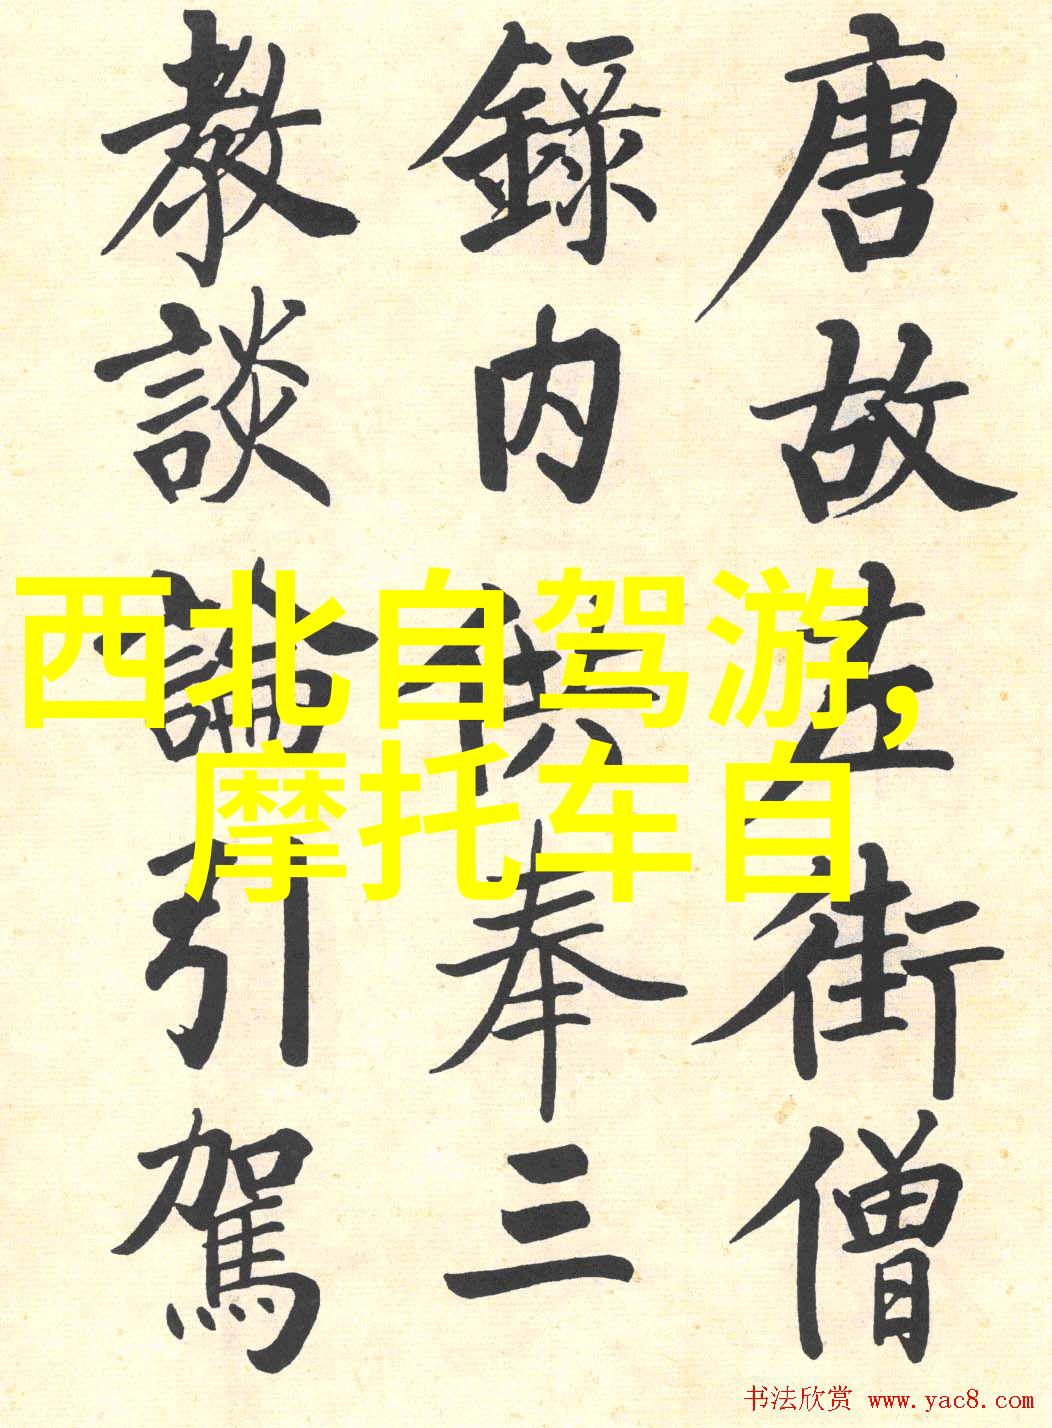 唐故左街僧
錄内供奉三
教談論引駕
西北自驾游,
摩托车自
书法欣赏 www.yac8.com